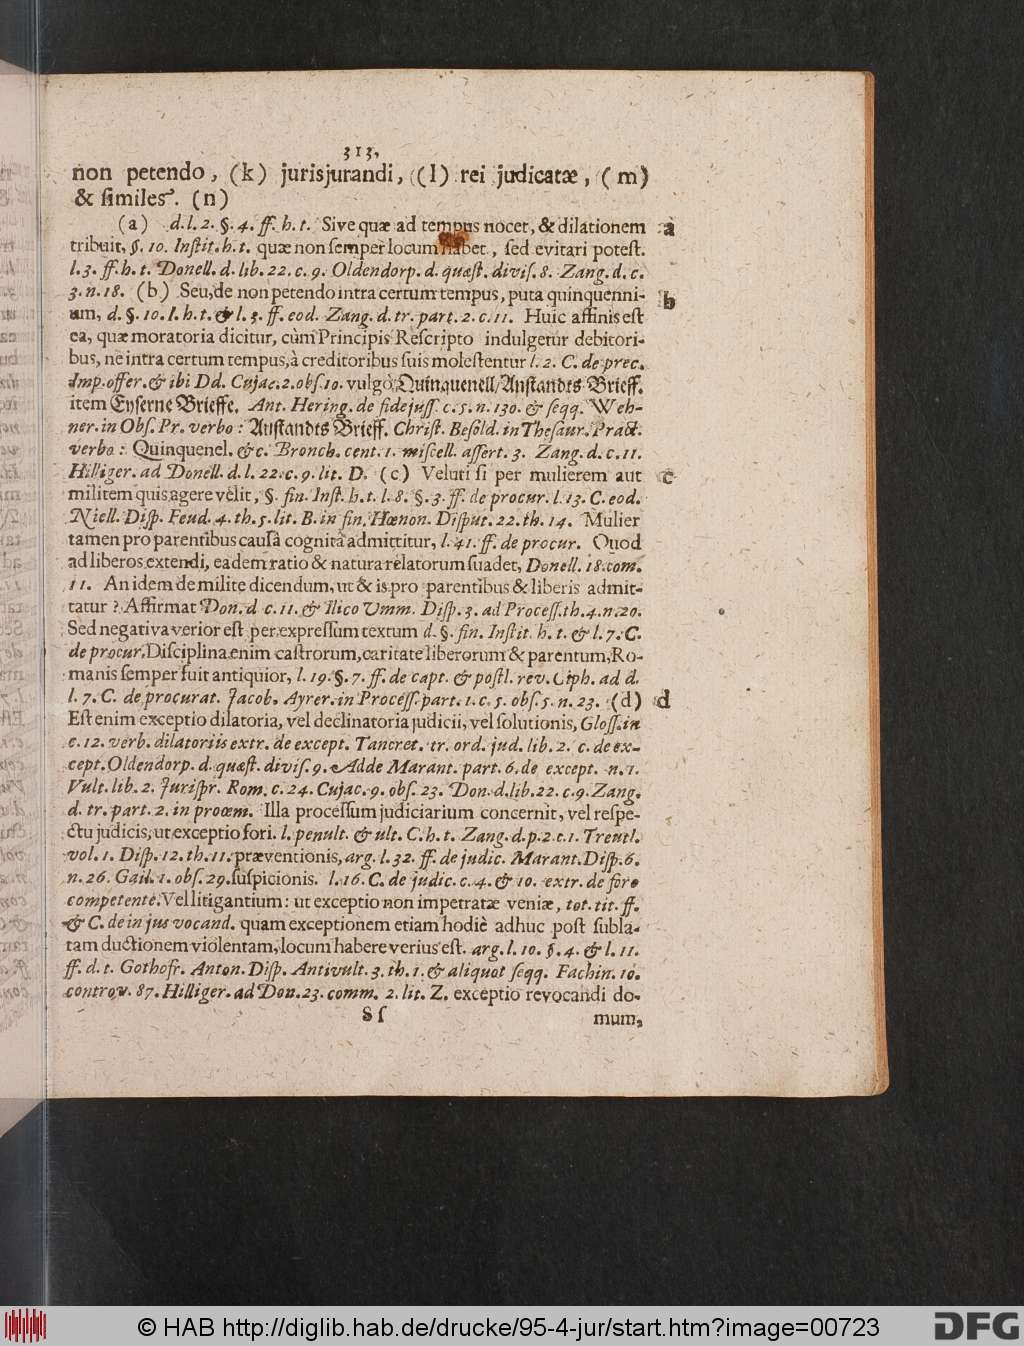 313.
non petendo, (k) jurisjurandi, (l) rei judicatæ, (m)
& similes. (n)
(a) d. l. 2. §. 4. ff. h. t. Sive quæ ad tempus nocet, & dilationem a
tribuit, §. 10. Instit. h. t. quæ non semper locum habet, sed evitari potest.
l. 3. ff. h. t. Donell. d. lib. 22. c. 9. Oldendorp. d. quæst. divis. 8. Zang. d. c.
3. n. 18. (b) Seu, de non petendo intra certum tempus, puta quinquenni- b
um, d. §. 10. I. h. t. & l. 3. ff. eod. Zang. d. tr. part. 2. c. 11. Huic affinis est
ea, quæ moratoria dicitur, cùm Principis Rescripto indulgetur debitori-
bus, ne intra certum tempus, à creditoribus suis molestentur l. 2. C. de prec.
Imp. offer. & ibi Dd. Cujac. 2. obs. 10. vulgò, Quinquenell/Anstandts Brieff.
item Eyserne Brieffe. Ant. Hering. de fidejuss. c. 5. n. 130. & seqq. Weh-
ner. in Obs. Pr. verbo: Anstandts Brieff. Christ. Besold. in Thesaur. Pract.
verbo: Quinquenel. &c. Bronch. cent. 1. miscell. assert. 3. Zang. d. c. 11.
Hilliger. ad Donell. d. l. 22. c. 9. lit. D. (c) Veluti si per mulierem aut c
militem quis agere velit, §. fin. Inst. h. t. l. 8. §. 3. ff. de procur. l. 13. C. eod.
Niell. Disp. Feud. 4. th. 5. lit. B. in fin. Hœnon. Disput. 22. th. 14. Mulier
tamen pro parentibus causâ cognitâ admittitur, l. 41. ff. de procur. Quod
ad liberos extendi, eadem ratio & natura relatorum suadet, Donell. 18. com.
11. An idem de milite dicendum, ut & is pro parentibus & liberis admit-
tatur? Affirmat Don. d c. 11. & Ilico Umm. Disp. 3. ad Process. th. 4. n. 20.
Sed negativa verior est per expressum textum d. §. fin. Instit. h. t. & l. 7. C.
de procur. Disciplina enim castrorum, caritate liberorum & parentum, Ro-
manis semper fuit antiquior, l. 19. §. 7. ff. de capt. & postl. rev. Ciph. ad d.
l. 7. C. de procurat. Jacob. Ayrer. in Process. part. 1. c. 5. obs. 5. n. 23. (d) d
Est enim exceptio dilatoria, vel declinatoria judicii, vel solutionis, Gloss. in
c. 12. verb. dilatoriis extr. de except. Tancret. tr. ord. jud. lib. 2. c. de ex-
cept. Oldendorp. d. quæst. divis. 9. Adde Marant. part. 6. de except. n. 1.
Vult. lib. 2. Jurispr. Rom. c. 24. Cujac. 9. obs. 23. Don. d. lib. 22. c. 9. Zang.
d. tr. part. 2. in proœm. Illa processum judiciarium concernit, vel respe-
ctu judicis, ut exceptio fori. l. penult. & ult. C. h. t. Zang. d. p. 2. c. 1. Treutl.
vol. 1. Disp. 12. th. 11. præventionis, arg. l. 32. ff. de judic. Marant. Disp. 6.
n. 26. Gail. 1. obs. 29. suspicionis. l. 16. C. de judic. c. 4. & 10. extr. de foro
competente. Vel litigantium: ut exceptio non impetratæ veniæ, tot. tit. ff.
& C. de in jus vocand. quam exceptionem etiam hodiè adhuc post subla-
tam ductionem violentam, locum habere verius est. arg. l. 10. §. 4. & l. 11.
ff. d. t. Gothofr. Anton. Disp. Antivult. 3. th. 1. & aliquot seqq. Fachin. 10.
controv. 87. Hilliger. ad Don. 23. comm. 2. lit. Z. exceptio revocandi do-
Ss mum,
© HAB http://diglib.hab.de/drucke/95-4-jur/start.htm?image=00723
DFG